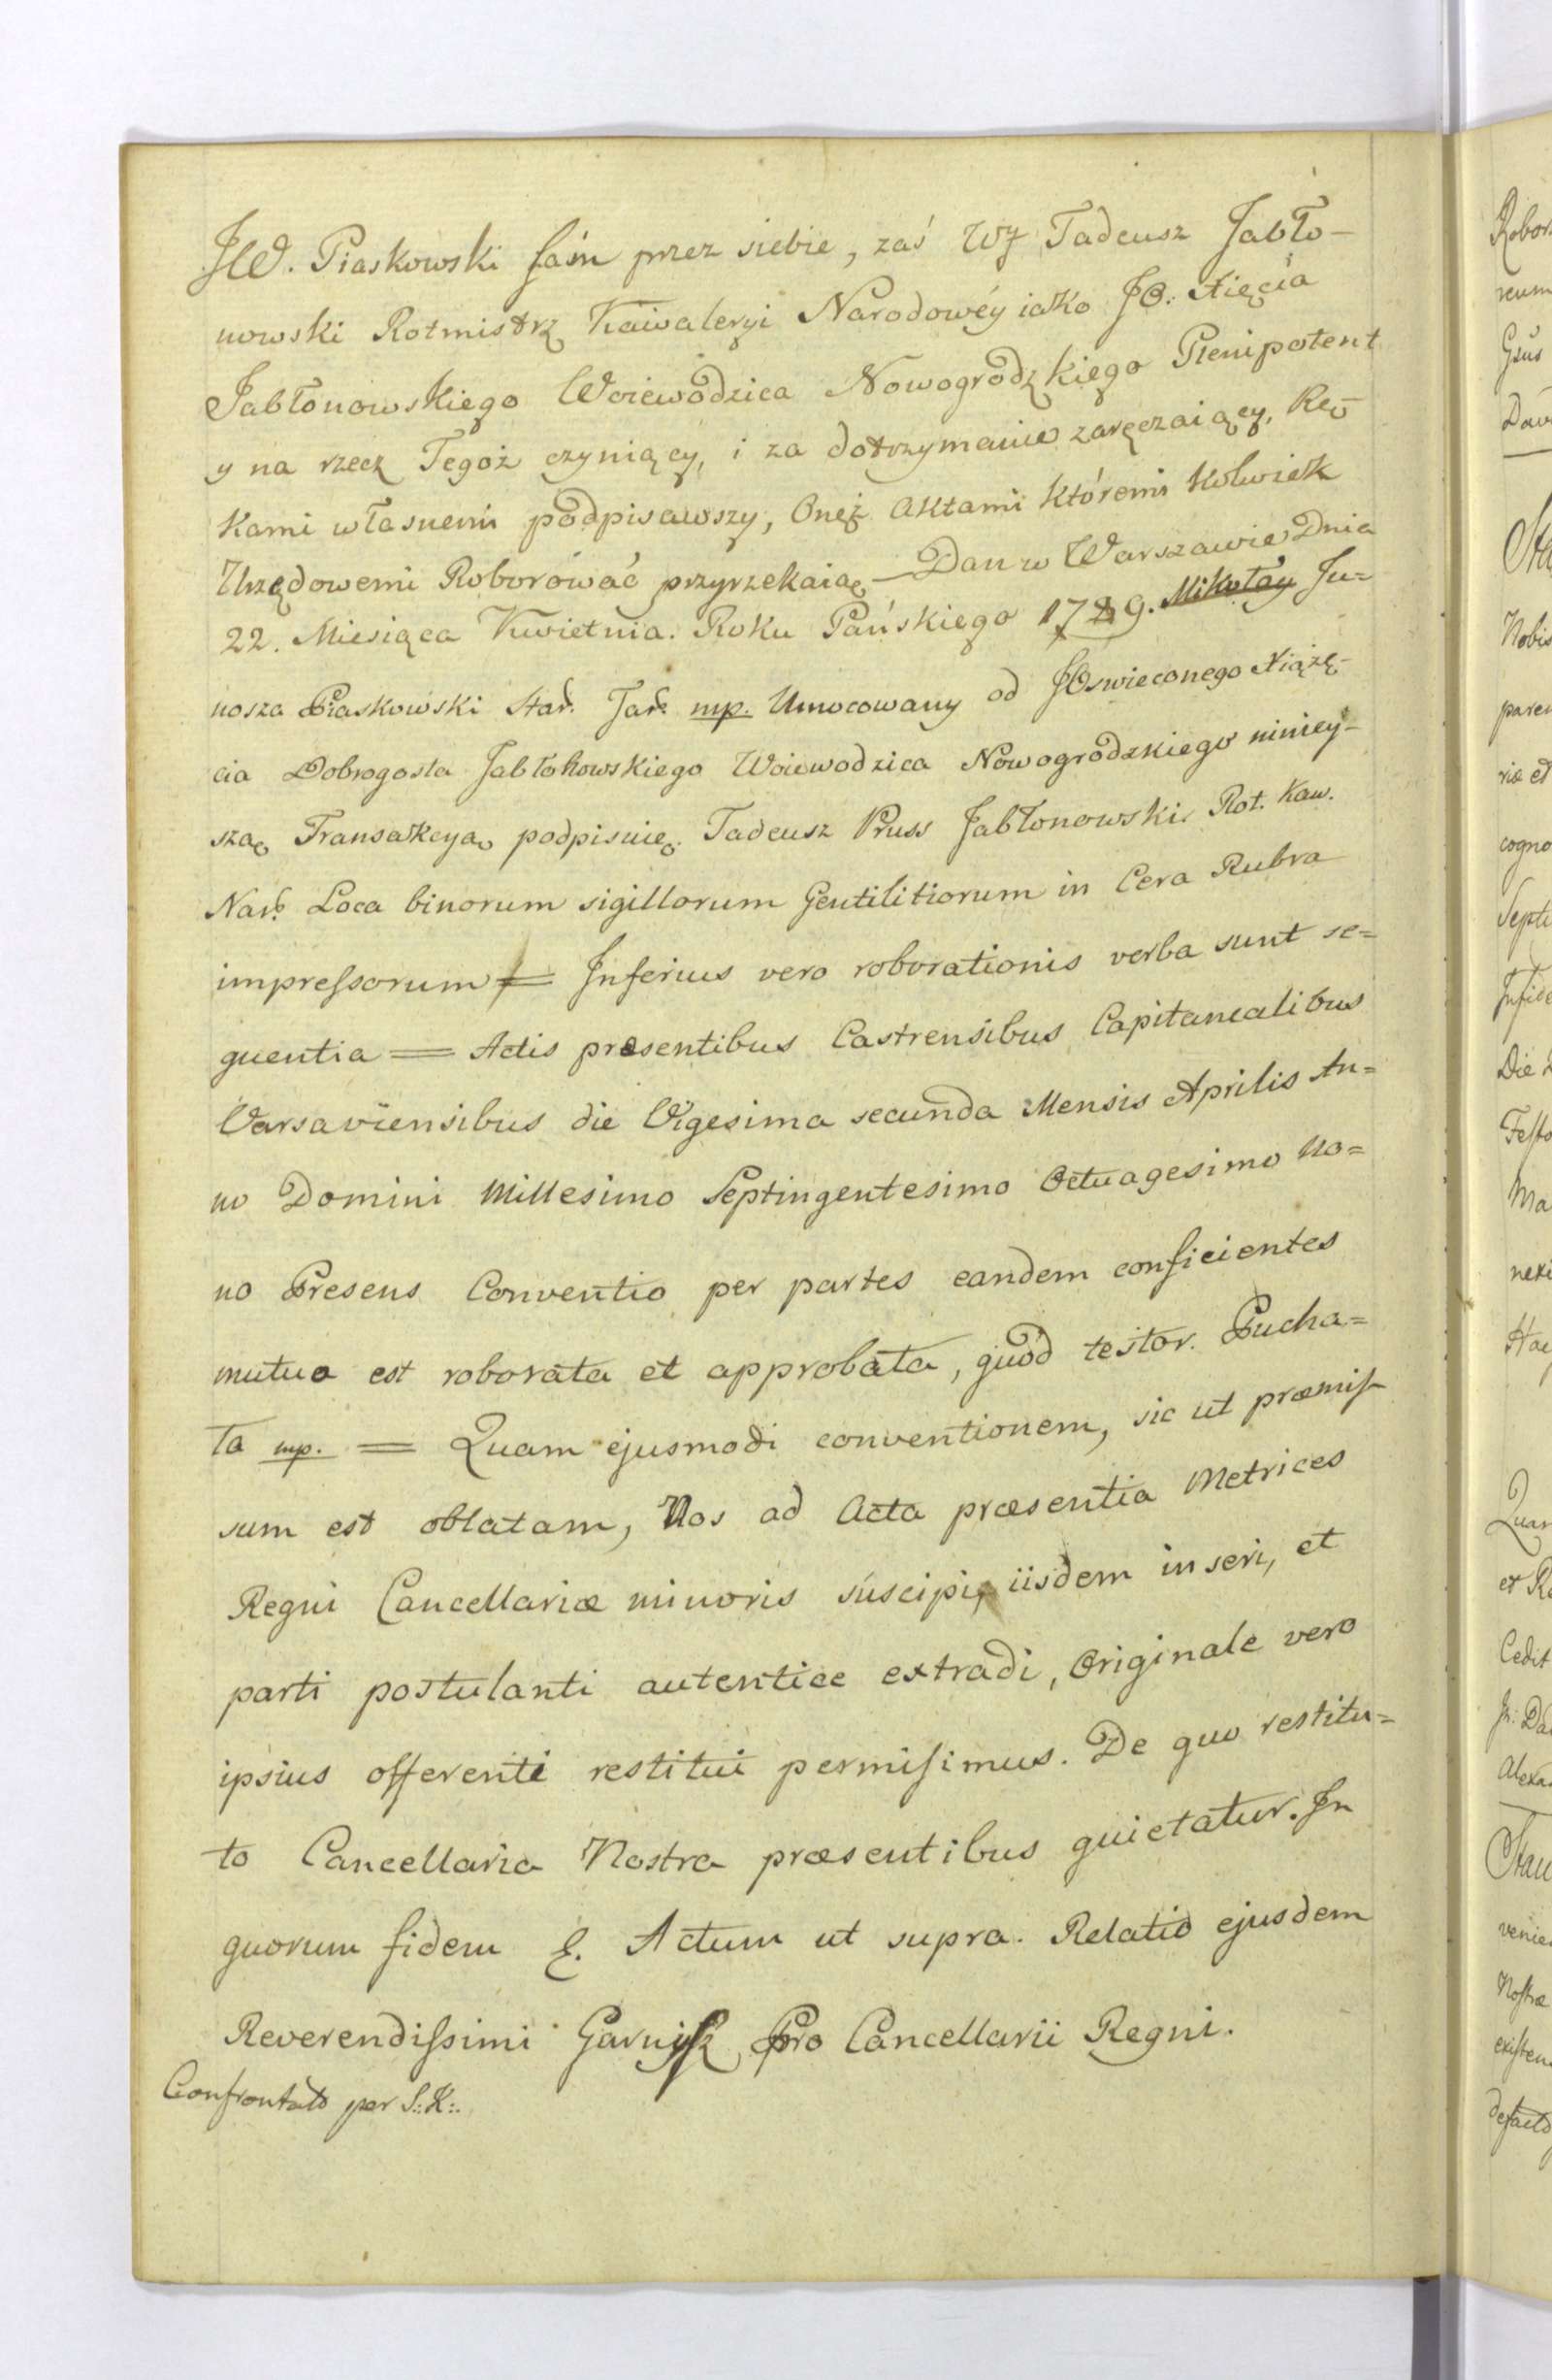 JW. Piaskowski sam przez siebie, zaś WJ Tadeusz Jabło-
nowski Rotmistrz Kawaleryi Narodowéy iako JO: Xięcia
Jabłonowskiego Woiewodzica Nowogrodzkiego Plenipotent
y na rzecz Tegoż czyniący, i za dotrzymanie zaręczaiący, Rę-
kami własnemi podpisawszy, Onęż Aktami któremi kolwiek
Urzędowemi Roborować przyrzekaią — Dan w Warszawie Dnia
22. Miesiąca Kwietnia. Roku Pańskiego 1789. Mikołay Ju-
nosza Piaskowski Star. Tar. mp. Umocowany od JOswieconego Xiążę-
cia Dobrogosta Jabłonowskiego Woiewodzica Nowogrodzkiego niniey-
szą Transakcyą podpisuię. Tadeusz Pruss Jabłonowski Rot. Kaw.
Nar. Loca binorum sigillorum Gentilitiorum in Cera Rubra
impressorum = Inferius vero roborationis verba sunt se=
quentia = Actis præsentibus Castrensibus Capitanealibus
Varsaviensibus die Vigesima secunda Mensis Aprilis An=
no Domini Millesimo Septingentesimo Octuagesimo No=
no Presens Conventio per partes eandem conficientes
mutuo est roborata et approbata, quod testor. Pucha=
ła mp. = Quam ejusmodi conventionem, sic ut præmis-
sum est oblatam, Nos ad Acta præsentia Metrices
Regni Cancellariæ minoris suscipi, iisdem inseri, et
parti postulanti autentice extradi, Originale vero
ipsius offerenti restitui permisimus. De quo restitu=
to Cancellaria Nostra præsentibus quietatur. In
quorum fidem &. Actum ut supra. Relatio ejusdem
Reverendissimi Garnysz Pro Cancellarii Regni.
Confrontatd per S: K:.